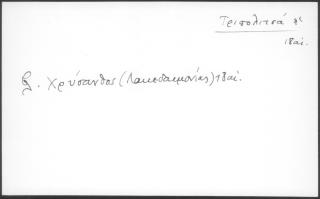 Τριπολιτσά
18αι.
Χρύσανθος (Λακεδαιμονίας) 18αι.